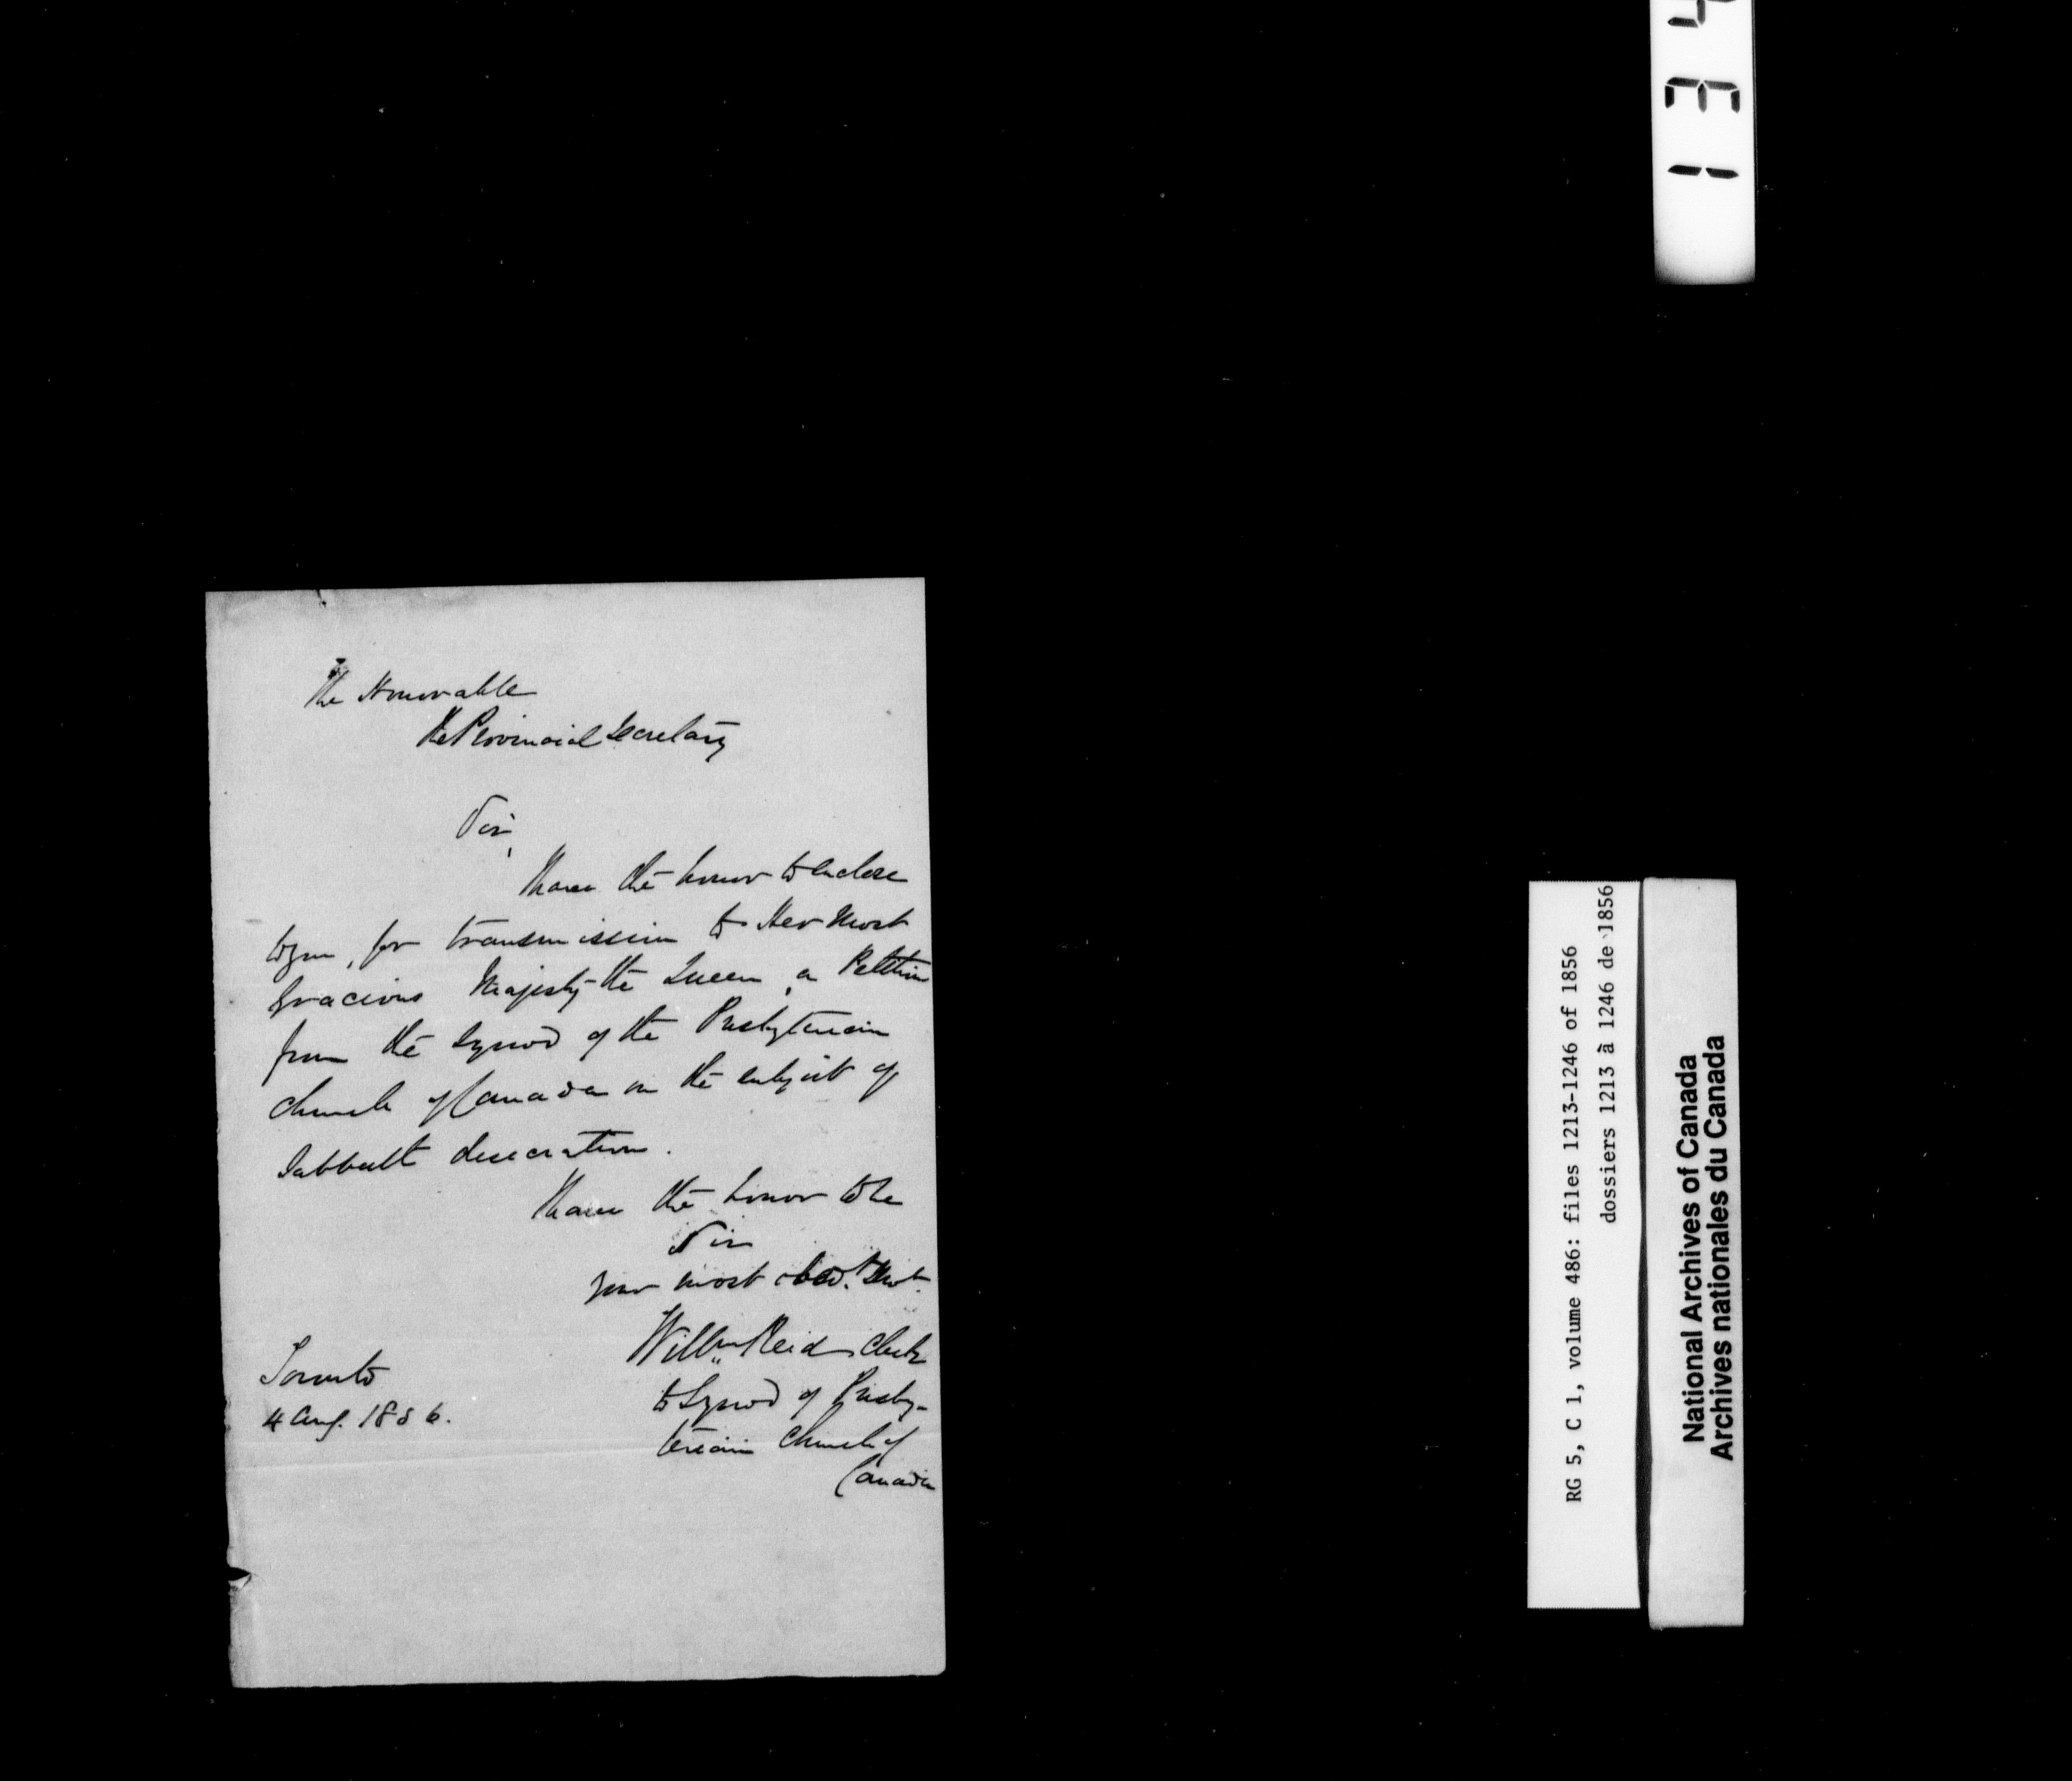 The Honorable
The Provincial Secretary
Sir,
I have the honor to enclose
to you, for transmission to Her Most
Gracious Majesty the Queen, a Petition
from the Synod of the Presbyterian
Church of Canada on the subject of
Sabbath desecration.
I have the honor to be
Sir
your most obedt. Servt.
Willm Reid Clerk
to Synod of Presby-
terian Church of
Canada
Toronto
4 Aug. 1856.
RG 5, C 1, volume 486: files 1213-1246 of 1856
dossiers 1213 à 1246 de 1856
National Archives of Canada
Archives nationales du Canada